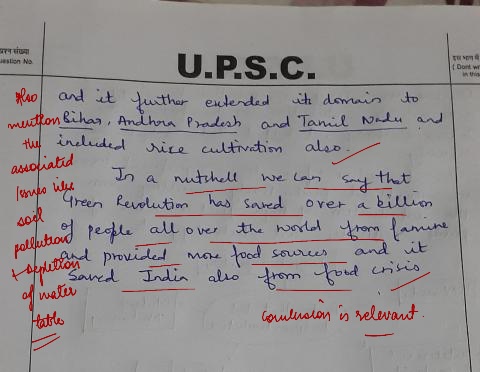 प्रश्न संख्या
Question No.
U.P.S.C.
इस भाग में
(Dont wr
in this
and it further extended its domain to
Bihar, Andhra Pradesh and Tamil Nadu and
included rice cultivation also.
In a nutshell we can say that
Green Revolution has saved over a billion
of people all over the world from famine
and provided more food sources and it
saved India also from food crisis
Also
mention
the
associated
Issues like
soil
pollution
+ depletion
of water
table
Conclusion is relevant.